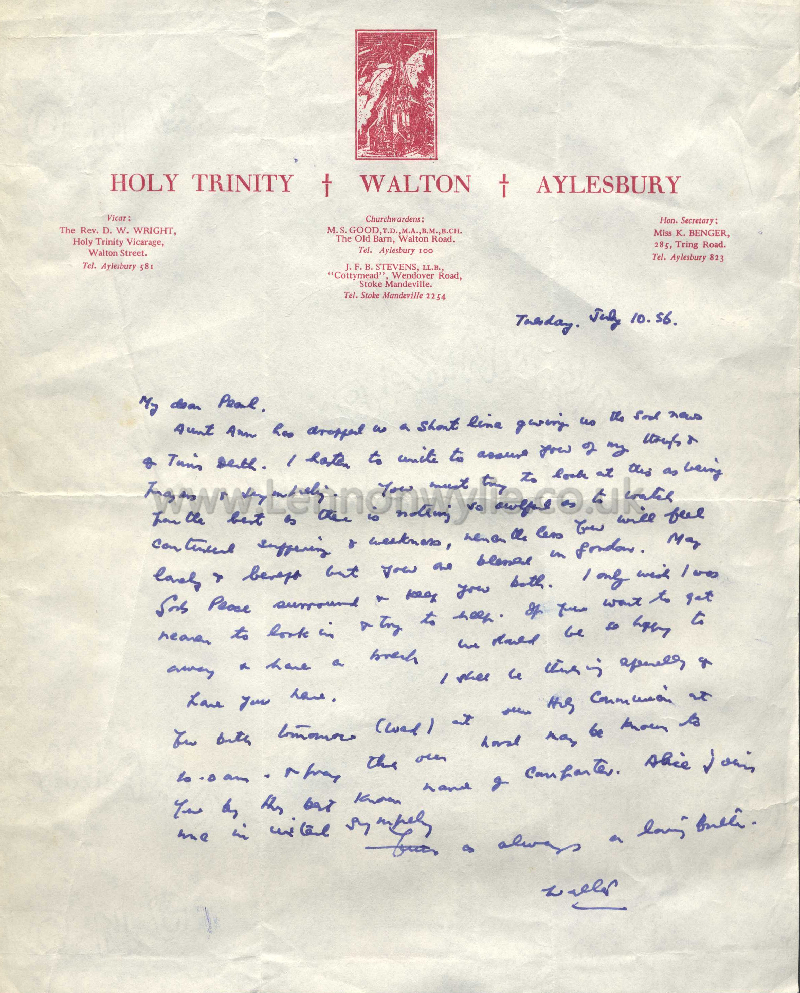 HOLY TRINITY † WALTON † AYLESBURY
Vicar:
The Rev. D. W. WRIGHT,
Holy Trinity Vicarage,
Walton Street.
Tel. Aylesbury 581
Churchwardens:
M. S. GOOD, T.D., M.A., B.M., B.CH.
The Old Barn, Walton Road.
Tel. Aylesbury 100
J. F. B. STEVENS, LL.B.,
"Cottymead", Wendover Road,
Stoke Mandeville.
Tel. Stoke Mandeville 2254
Hon. Secretary:
Miss K. BENGER,
285, Tring Road.
Tel. Aylesbury 823
Tuesday. July 10. 56.
My dear Pearl.
Aunt Ann has dropped us a short line giving us the sad news
of Tim's death. I hasten to write to assure you of my thoughts &
prayers & sympathy. You must try to look at this as being
for the best as there is nothing so awful as to watch
continued suffering & weakness, nevertheless you will feel
lonely & bereft but you are blessed in Gordon. May
God's Peace surround & keep you both. I only wish I was
nearer to look in & try to help. If you want to get
away & have a break we should be so happy to
have you here. I shall be thinking especially of
you both tomorrow (Wed) at our Holy Communion at
10.0 am. & pray that our Lord may be known to
you by His best known name of Comforter. Alice joins
me in united sympathy
as always a loving brother.
www.Lennonwylie.co.uk